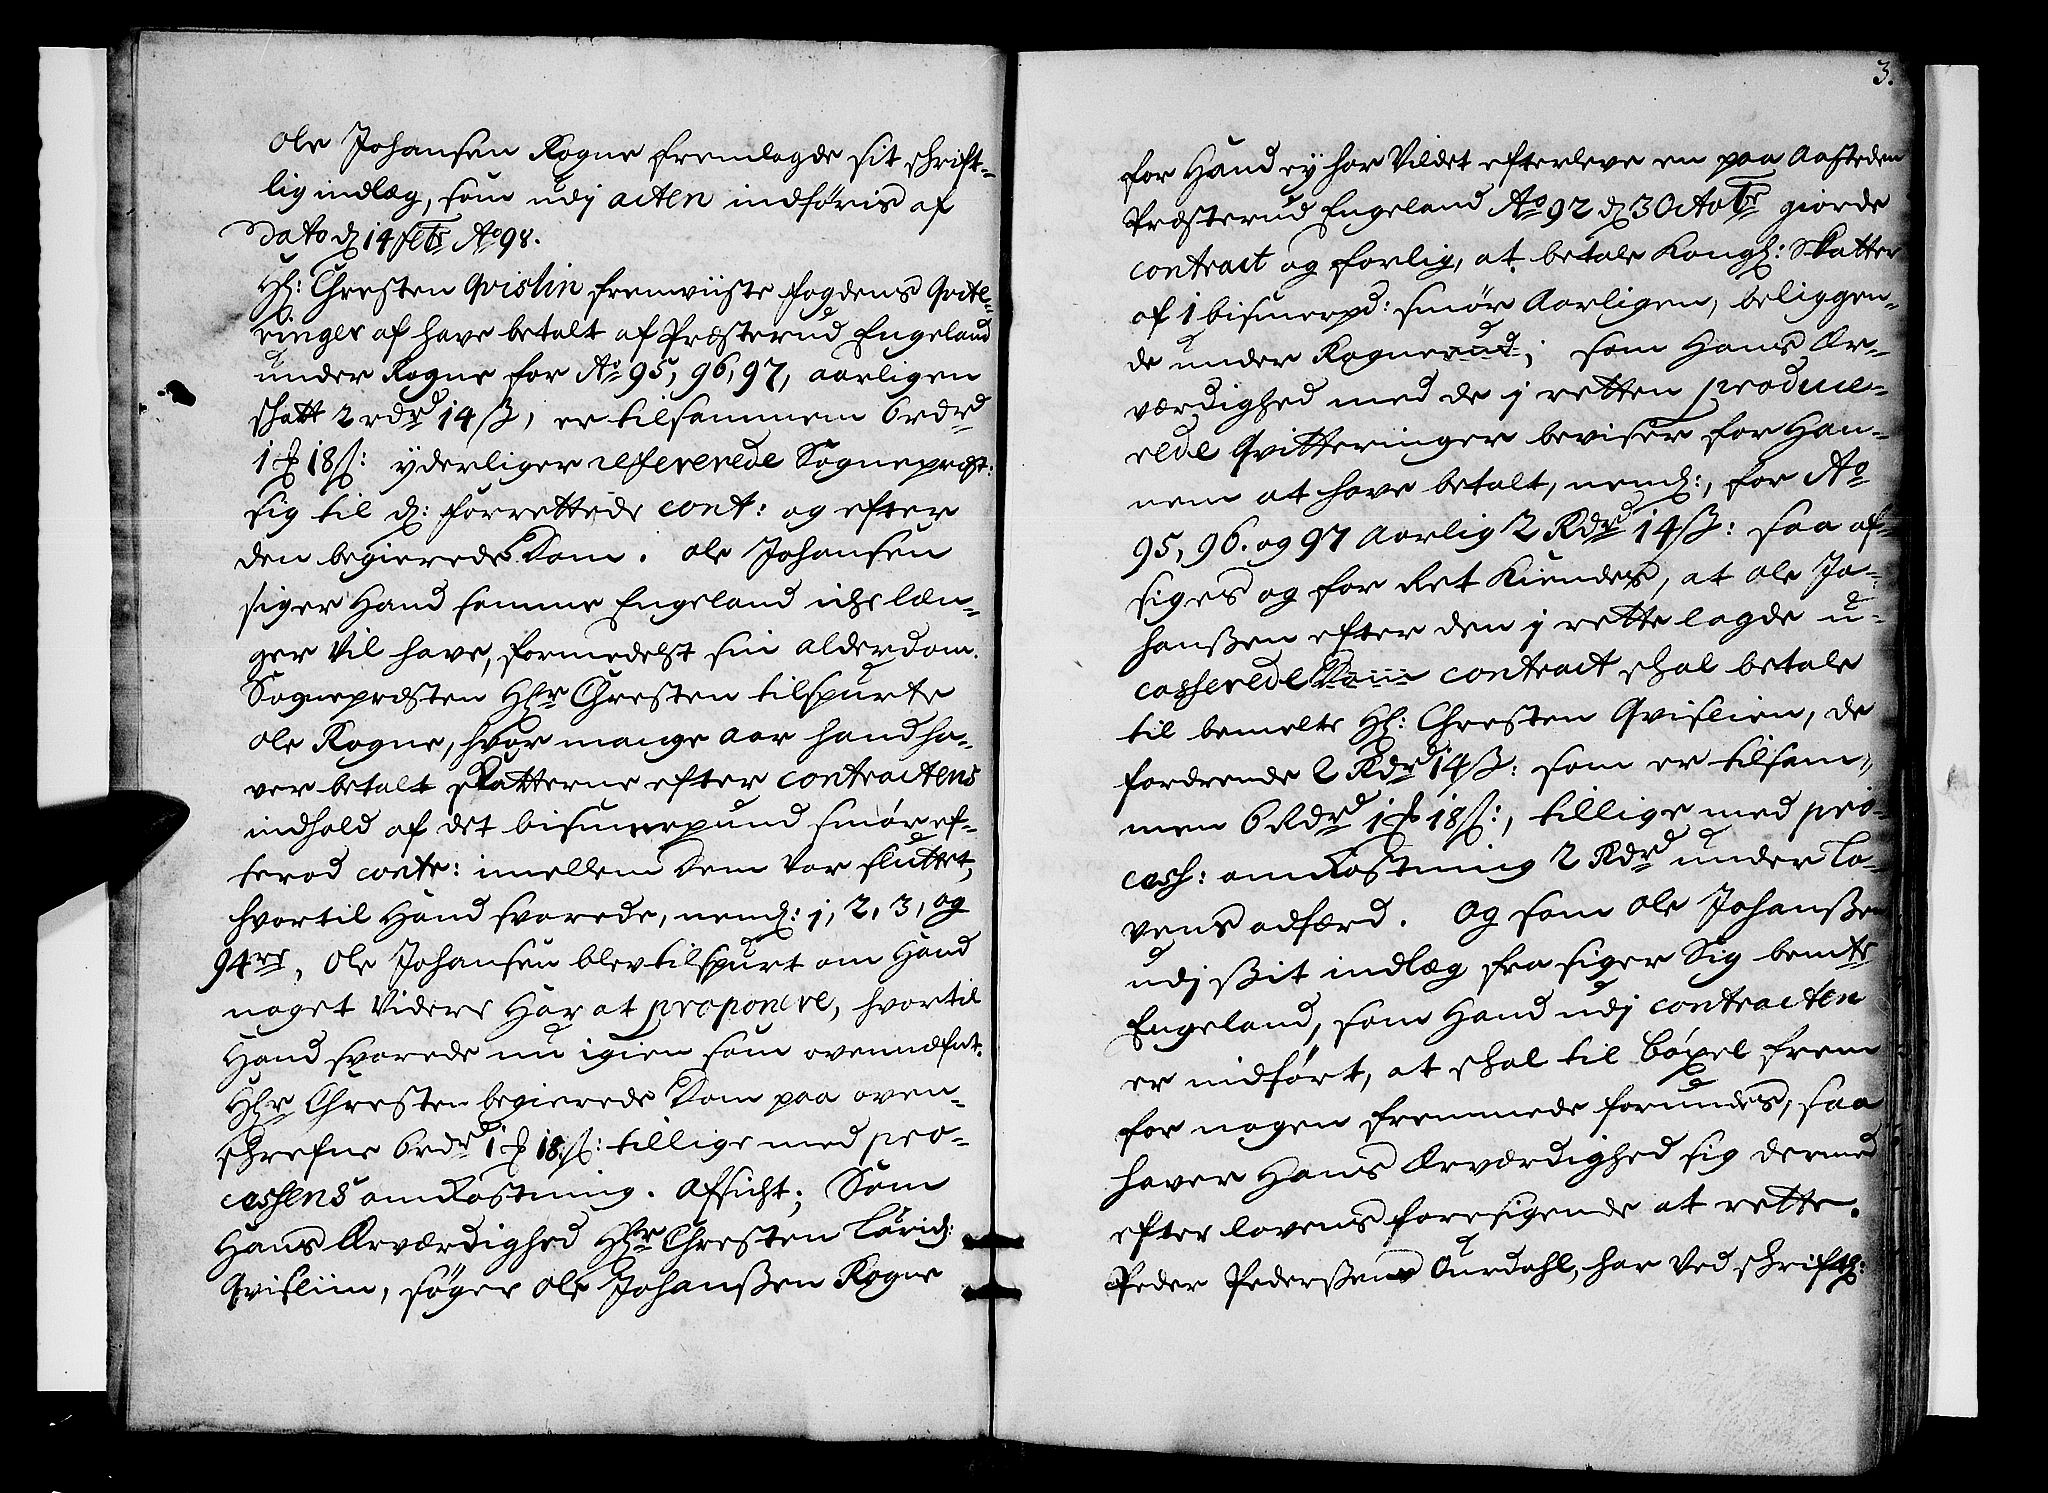 Ole Johansen Rogne fremlagde sit schrift-
lig indlæg, som udj acten indføris af
Dato d 14 febr Ao 98.
Hr: Christen Qvislin fremviiste fogdens Qvite-
ringer af have betalt af Præsterud Engeland
under Rogne for Ao 95, 96, 97, aarligen
schatt 2 rdr 14 ß, er tilsammen 6 rdr
1 18 ß: yderliger refererede Sogneprest:
sig til d: forrettede cont: og efter
den begierede Dom. Ole Johansen
siger Hand samme Engeland iche læn-
ger vil have, formedelst sin alderdom.
Sognepræsten Hr Chresten tilspurte
Ole Rogne, hvor mange aar hand ha-
ver betalt skatterne efter contractens
indhold af det bismerpund smør ef-
terad contr: imellem dem var sluttet,
hvortil Hand svarede, neml: 1, 2, 3, og
94re, Ole Johansen blev tilspurt om Hand
noget Videre Har at proponere, hvortil
Hand svarede nu igien som ovennefnt.
Hr Chresten begierede Dom paa oven-
schrefne 6 rdr 1 18 ß: tillige med pro-
cessens omkostning. Afsicht; Som
Hans Ærværdighed Hr Chresten Laurid:
Qvisliin, søger Ole Johanßen Rogne
3.
for Hand ey har Vildet efterleve en paa Aasteden
Præsterud Engeland Ao 92 d 3 Octobr giorde
contract og forlig, at betale Kongl: Skatter
af 1 bismerpd: smør Aarligen, beliggen-
de under Rognerud; som Hans Ær-
værdighed med de j retten produce-
rede Qvitteringer beviser for Han-
nem at have betalt, neml:, for Ao
95, 96. og 97 Aarlig 2 Rdr 14 ß: saa af-
siges og for Ret Kiendes, at Ole Jo-
hanßen efter den j rette lagde u-
casserede Dom contract schal betale
til bemelte Hr: Chresten Qvislien, de
fordrende 2 Rdr 14 ß: som er tilsam-
men 6 Rdr 1 18 ß:, tillige med pro-
cess: omkostning 2 Rdr under lo-
vens adfærd. Og som Ole Johanßen
udj ßit indlæg fra siger Sig bemte
Engeland, som Hand udj contracten
er indført, at schal til bøxel frem
for nogen fremmede forundes, saa
haver Hans Ærværdighed sig dermed
efter lovens foresigende at rette.
Peder Pederßen Ourdahl, har Ved schriftl: